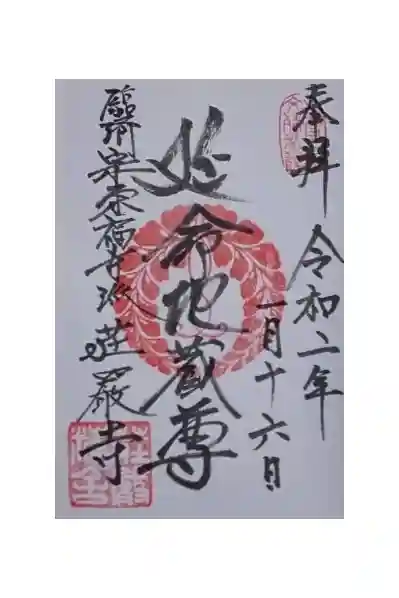 奉拝
令和二年
一月十六日
延命地蔵尊
臨済宗東福寺派 荘厳寺